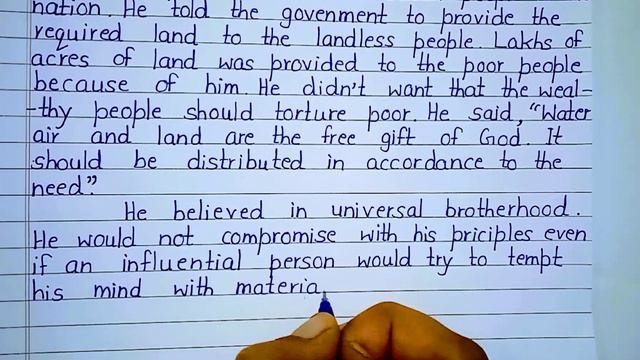 nation. He told the govenment to provide the
required land to the landless people. Lakhs of
acres of land was provided to the poor people
because of him. He didn't want that the weal-
-thy people should torture poor. He said, "Water
air and land are the free gift of God. It
should be distributed in accordance to the
need".
He believed in universal brotherhood.
He would not compromise with his priciples even
if an influential person would try to tempt
his mind with materia